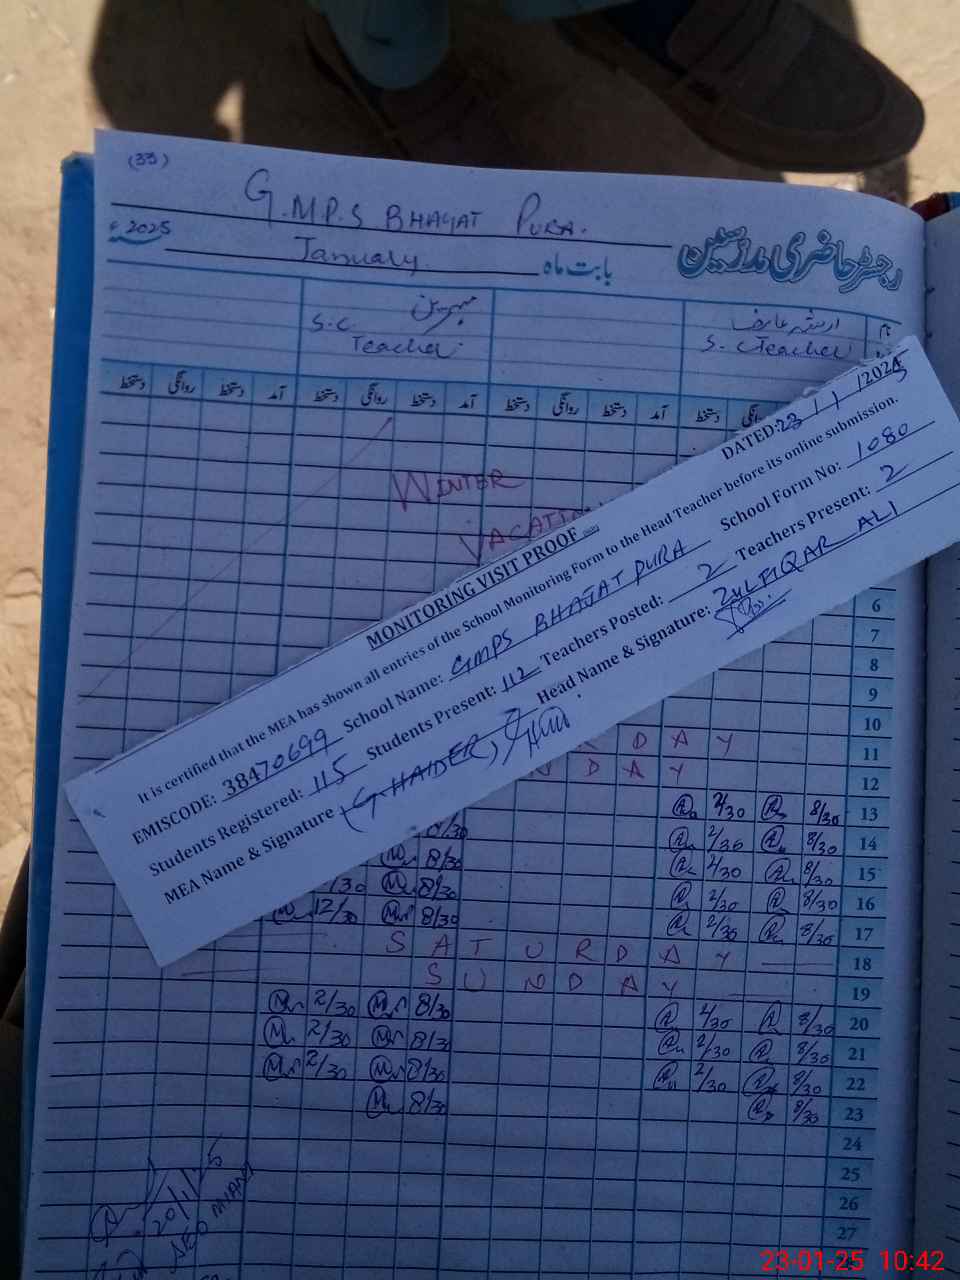 (33)
G.M.P.S BHAYAT PURA.
2025ء
January بابت ماہ رجسٹر حاضری مدرسین
مہرین
S.C
Teacher
ارشد عارف
S. C Teacher
دستخط روانگی دستخط آمد دستخط روانگی دستخط آمد دستخط روانگی دستخط آمد دستخط
WINTER
VACATION
DATED: 23/1/2025
MONITORING VISIT PROOF
It is certified that the MEA has shown all entries of the School Monitoring Form to the Head Teacher before its online submission.
EMISCODE: 38470699 School Name: GMPS BHAJAT PURA School Form No: 1080
Students Registered: 115 Students Present: 112 Teachers Posted: 2 Teachers Present: 2
MEA Name & Signature (G. HAIDER) Head Name & Signature: ZULFIQAR ALI
6
7
8
9
10
RDAY 11
NDAY 12
2/30 8/30 13
8/30 2/30 8/30 14
8/30 2/30 8/30 15
/30 8/30 2/30 8/30 16
12/30 8/30 2/30 8/30 17
SATURDAY 18
SUNDAY 19
2/30 8/30 2/30 8/30 20
2/30 8/30 2/30 8/30 21
2/30 8/30 2/30 8/30 22
8/30 8/30 23
24
25
20/1/25
AEO MIANI
26
27
23-01-25 10:42